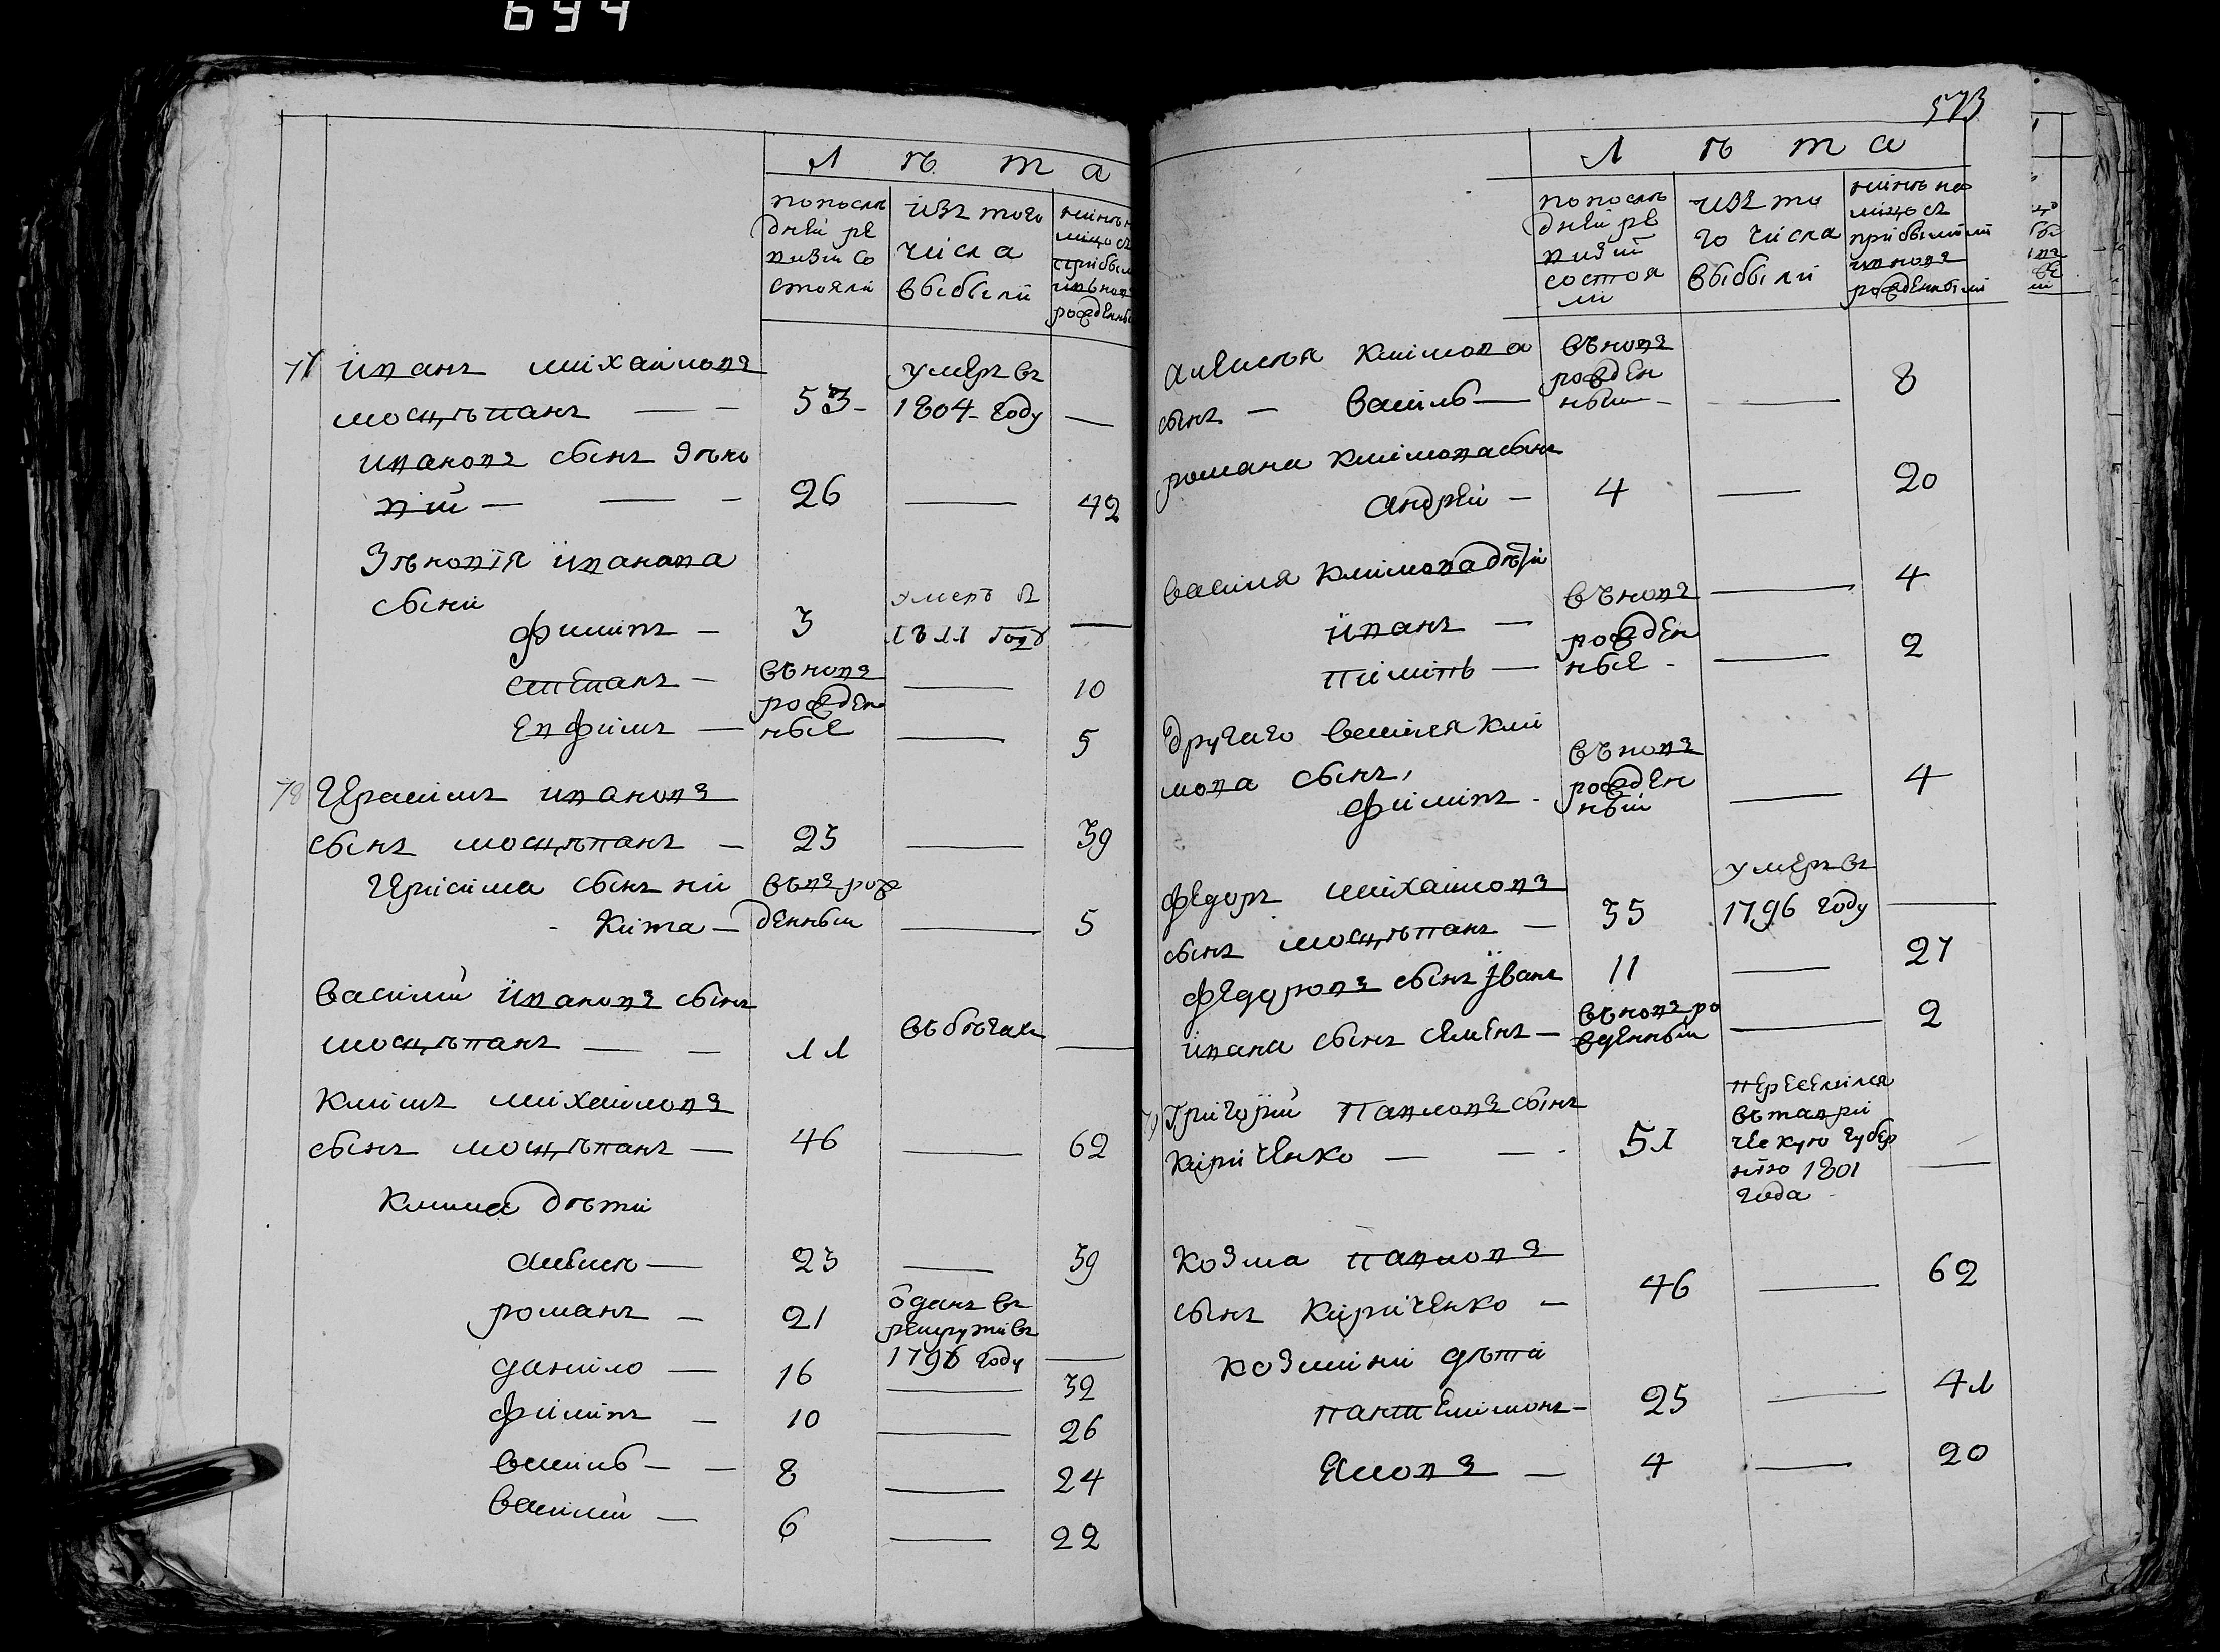 694
Л ѣ т а
попослѣ
дней ре
визіи со
стояли
изъ того
числа
выбыли
нинѣ н
лицо съ
прибыл
ивьновъ
рожденны
77 Иванъ михайловъ
мосцѣпанъ — — 53 — умеръ въ
1804 году —
ивановъ сынъ Зѣно
вій — — — 26 — 42
Зѣновія иванова
сыни
филипъ — 3 умеръ в
1811 году —
степанъ — вьновъ
рожден
ные — 10
евфимъ — — 5
78 Герасимъ ивановъ
сынъ мосцѣпанъ — 25 — 39
Герисима сынъ ни
кита — вьвъ рож
денный — 5
василий ивановъ сынъ
мосцѣпанъ — — 11 въ бѣгахъ —
климъ михайловъ
сынъ мосцѣпанъ — 46 — 62
клима дѣти
алексѣ — 23 — 39
романъ — 21 оданъ въ
рекруты въ
1796 году —
данило — 16 — 32
филипъ — 10 — 26
василь — — 8 — 24
василий — 6 — 22
573
Л ѣ т а
попослѣ
дней ре
визіи
состоя
ли
изъ то
го числа
выбыли
нинѣ на
лицо съ
прибылими
ивновъ
рожденными
алексѣя климова
сынъ — василь — вьновъ
рожден
ный — — 8
романа климова сынъ
андрей — 4 — 20
василя климова дѣти
иванъ — вьновъ
рожден
ные — — 4
пилипъ — — 2
другаго василя кли
мова сынъ,
филипъ — вьновъ
рожден
ный — 4
федоръ михайловъ
сынъ мосцѣпанъ — 35 умеръ въ
1796 году —
федоровъ сынъ иванъ 11 — 27
ивана сынъ семенъ — вьновъ ро
жденный — 2
79 Григорий павловъ сынъ
кириченко — — 51 переселился
въ таври
ческую губер
нію 1801
года —
козма павловъ
сынъ кириченко — 46 — 62
козмини дѣти
пантелимонъ — 25 — 41
яковъ — 4 — 20